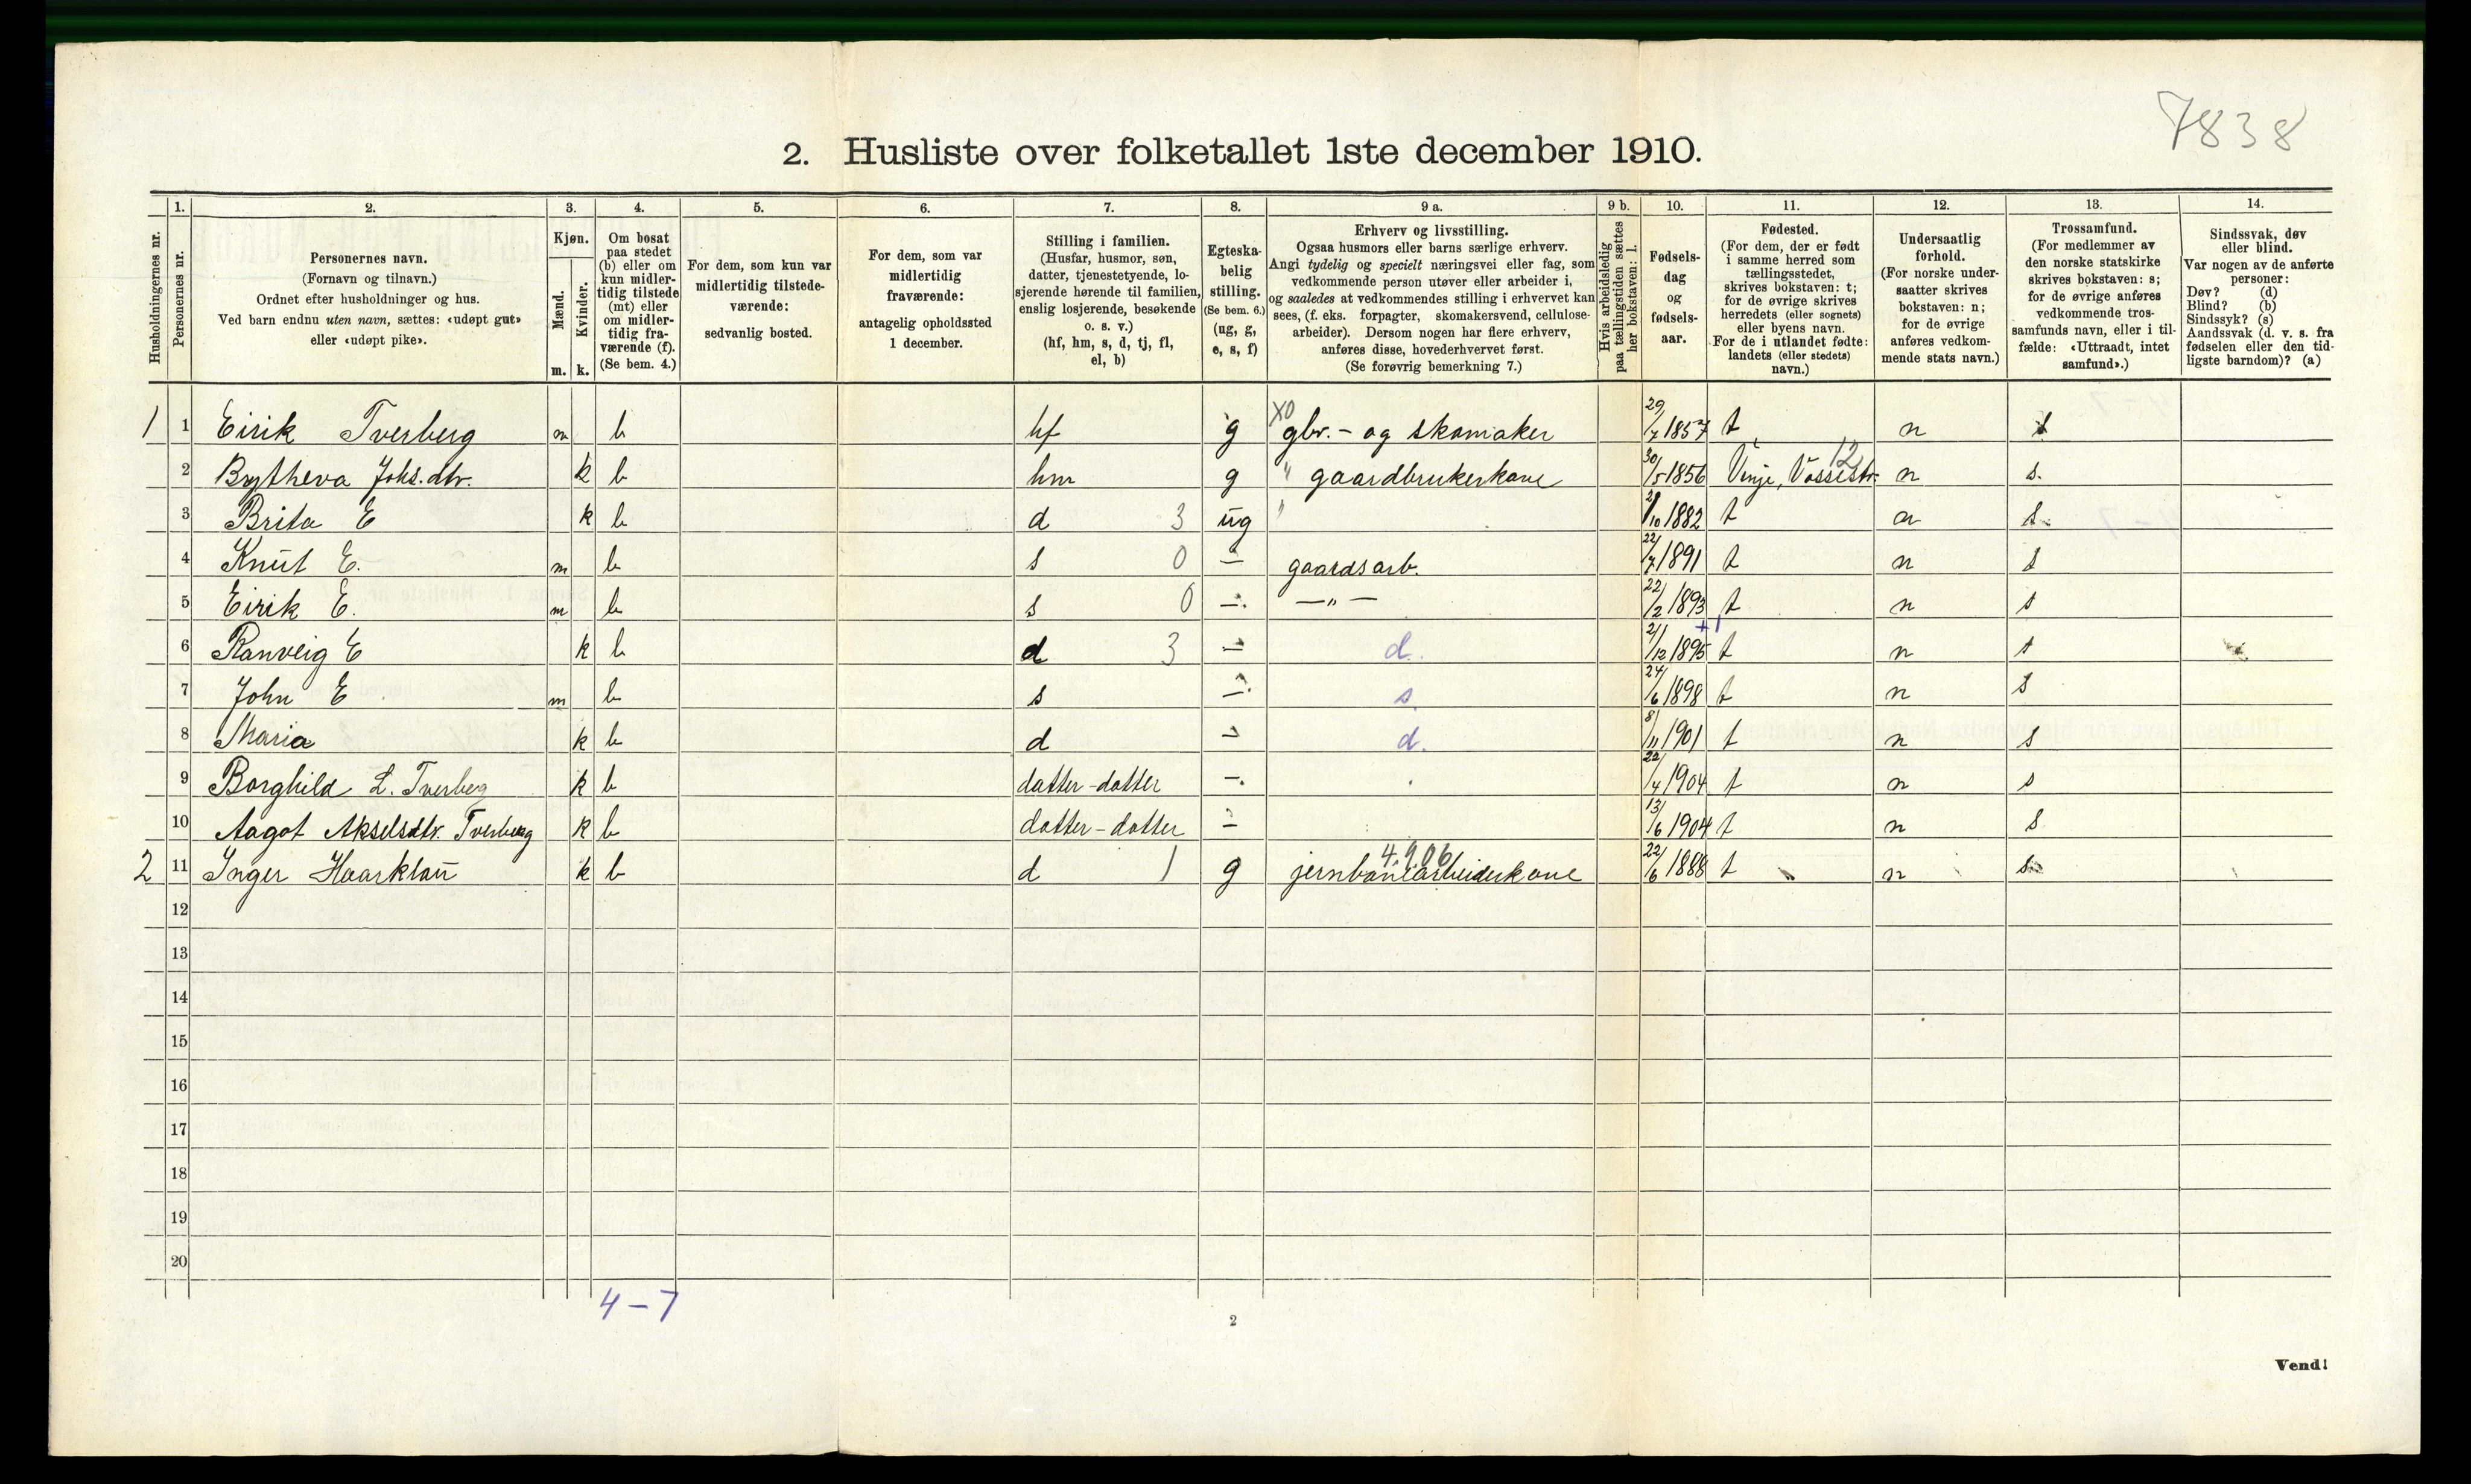 7838
2. Husliste over folketallet 1ste december 1910.
Husholdningernes nr.
1.
Personernes nr.
2.
Personernes navn.
(Fornavn og tilnavn.)
Ordnet efter husholdninger og hus.
Ved barn endnu uten navn, sættes: «udøpt gut»
eller «udøpt pike».
3.
Kjøn.
Mænd.
Kvinder.
m. k.
4.
Om bosat
paa stedet
(b) eller om
kun midler-
tidig tilstede
(mt) eller
om midler-
tidig fra-
værende (f).
(Se bem. 4.)
5.
For dem, som kun var
midlertidig tilstede-
værende:
sedvanlig bosted.
6.
For dem, som var
midlertidig
fraværende:
antagelig opholdssted
1 december.
7.
Stilling i familien.
(Husfar, husmor, søn,
datter, tjenestetyende, lo-
sjerende hørende til familien,
enslig losjerende, besøkende
o. s. v.)
(hf, hm, s, d, tj, fl,
el, b)
8.
Egteska-
belig
stilling.
(Se bem. 6.)
(ug, g,
e, s, f)
9 a.
Erhverv og livsstilling.
Ogsaa husmors eller barns særlige erhverv.
Angi tydelig og specielt næringsvei eller fag, som
vedkommende person utøver eller arbeider i,
og saaledes at vedkommendes stilling i erhvervet kan
sees, (f. eks. forpagter, skomakersvend, cellulose-
arbeider). Dersom nogen har flere erhverv,
anføres disse, hovederhvervet først.
(Se forøvrig bemerkning 7.)
9 b.
Hvis arbeidsledig
paa tællingstiden sættes
her bokstaven: l.
10.
Fødsels-
dag
og
fødsels-
aar.
11.
Fødested.
(For dem, der er født
i samme herred som
tællingsstedet,
skrives bokstaven: t;
for de øvrige skrives
herredets (eller sognets)
eller byens navn.
For de i utlandet fødte:
landets (eller stedets)
navn.)
12.
Undersaatlig
forhold.
(For norske under-
saatter skrives
bokstaven: n;
for de øvrige
anføres vedkom-
mende stats navn.)
13.
Trossamfund.
(For medlemmer av
den norske statskirke
skrives bokstaven: s;
for de øvrige anføres
vedkommende tros-
samfunds navn, eller i til-
fælde: «Uttraadt, intet
samfund».)
14.
Sindssvak, døv
eller blind.
Var nogen av de anførte
personer:
Døv? (d)
Blind? (b)
Sindssyk? (s)
Aandssvak (d. v. s. fra
fødselen eller den tid-
ligste barndom)? (a)
1 1 Eirik Tverberg m b hf g X0 gbr. - og skomaker 29/7 1857 t n s
2 Brytheva Johs.dtr. k b hm g " gaardbrukerkone 30/5 1856 Vinje, Vossestr. 12 n s.
3 Brita E k b d 3 ug " /10 1882 t n s.
4 Knut E. m b s 0 — gaardsarb. 22/7 1891 t n s
5 Eirik E. m b s 0 —. —"— 22/2 1893 t n s
6 Ranveig E k b d 3 — d. 21/12 1895 t n s
7 John E m b s —. s. 24/6 1898 t n s
8 Maria k b d — d. 8/11 1901 t n s
9 Borghild L. Tverberg k b datter-datter —. 22/4 1904 t n s
10 Aagot Akselsdtr. Tverberg k b datter-datter — 13/6 1904 t n s
2 11 Inger Haarklau k b d 1 g 4.906 jernbanearbeiderkone 22/6 1888 t n s
12
13
14
15
16
17
18
19
20
4-7
2
Vend!